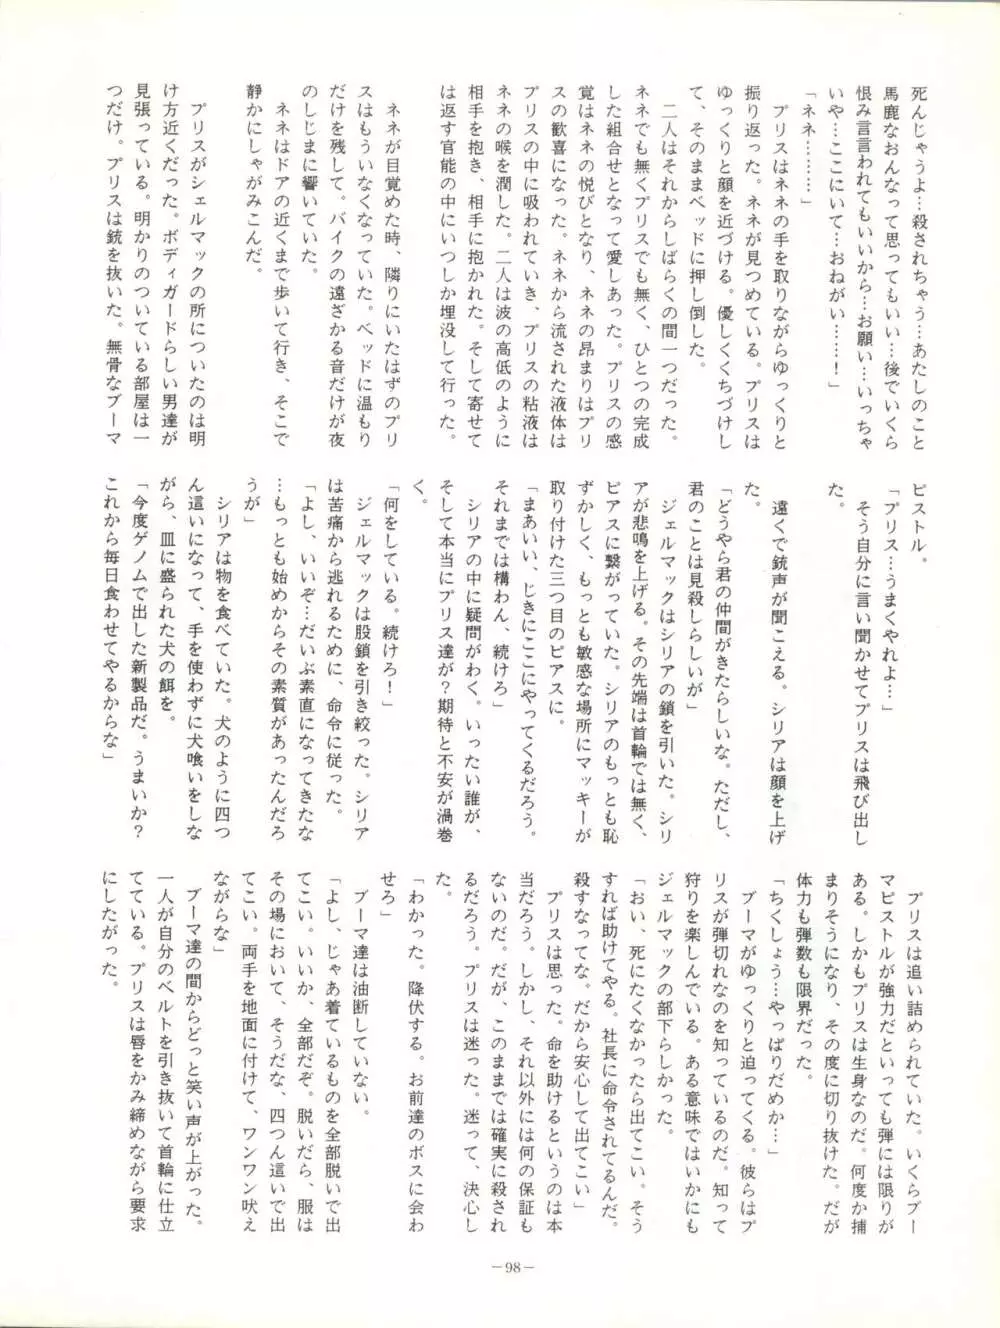 死んじゃうよ…殺されちゃう…あたしのこと
馬鹿なおんなって思ってもいい…後でいくら
恨み言言われてもいいから…お願い…いっちゃ
いや…ここにいて…おねがい……！」
「ネネ………」
プリスはネネの手を取りながらゆっくりと
振り返った。ネネが見つめている。プリスは
ゆっくりと顔を近づける。優しくくちづけし
て、そのままベッドに押し倒した。
二人はそれからしばらくの間一つだった。
ネネでも無くプリスでも無く、ひとつの完成
した組合せとなって愛しあった。プリスの感
覚はネネの悦びとなり、ネネの昂まりはプリ
スの歓喜になった。ネネから流された液体は
プリスの中に吸われていき、プリスの粘液は
ネネの喉を潤した。二人は波の高低のように
相手を抱き、相手に抱かれた。そして寄せて
は返す官能の中にいつしか埋没して行った。
ネネが目覚めた時、隣りにいたはずのプリ
スはもういなくなっていた。ベッドに温もり
だけを残して。バイクの遠ざかる音だけが夜
のしじまに響いていた。
ネネはドアの近くまで歩いて行き、そこで
静かにしゃがみこんだ。
プリスがジェルマックの所についたのは明
け方近くだった。ボディガードらしい男達が
見張っている。明かりのついている部屋は一
つだけ。プリスは銃を抜いた。無骨なブーマ
ピストル。
「プリス…うまくやれよ…」
そう自分に言い聞かせてプリスは飛び出し
た。
遠くで銃声が聞こえる。シリアは顔を上げ
た。
「どうやら君の仲間がきたらしいな。ただし、
君のことは見殺しらしいが」
ジェルマックはシリアの鎖を引いた。シリ
アが悲鳴を上げる。その先端は首輪では無く、
ピアスに繋がっていた。シリアのもっとも恥
ずかしく、もっとも敏感な場所にマッキーが
取り付けた三つ目のピアスに。
「まあいい、じきにここにやってくるだろう。
それまでは構わん、続けろ」
シリアの中に疑問がわく。いったい誰が、
そして本当にプリス達が？期待と不安が渦巻
く。
「何をしている。続けろ！」
ジェルマックは股鎖を引き絞った。シリア
は苦痛から逃れるために、命令に従った。
「よし、いいぞ…だいぶ素直になってきたな
…もっとも始めからその素質があったんだろ
うが」
シリアは物を食べていた。犬のように四つ
ん這いになって、手を使わずに犬喰いをしな
がら、皿に盛られた犬の餌を。
「今度ゲノムで出した新製品だ。うまいか？
これから毎日食わせてやるからな」
プリスは追い詰められていた。いくらブー
マピストルが強力だといっても弾には限りが
ある。しかもプリスは生身なのだ。何度か捕
まりそうになり、その度に切り抜けた。だが
体力も弾数も限界だった。
「ちくしょう…やっぱりだめか…」
ブーマがゆっくりと迫ってくる。彼らはプ
リスが弾切れなのを知っているのだ。知って
狩りを楽しんでいる。ある意味ではいかにも
ジェルマックの部下らしかった。
「おい、死にたくなかったら出てこい。そう
すれば助けてやる。社長に命令されてるんだ。
殺すなってな。だから安心して出てこい」
プリスは思った。命を助けるというのは本
当だろう。しかし、それ以外には何の保証も
ないのだ。だが、このままでは確実に殺され
るだろう。プリスは迷った。迷って、決心し
た。
「わかった。降伏する。お前達のボスに会わ
せろ」
ブーマ達は油断していない。
「よし、じゃあ着ているものを全部脱いで出
てこい。いいか、全部だぞ。脱いだら、服は
その場において、そうだな、四つん這いで出
てこい。両手を地面に付けて、ワンワン吠え
ながらな」
ブーマ達の間からどっと笑い声が上がった。
一人が自分のベルトを引き抜いて首輪に仕立
てている。プリスは唇をかみ締めながら要求
にしたがった。
－98－